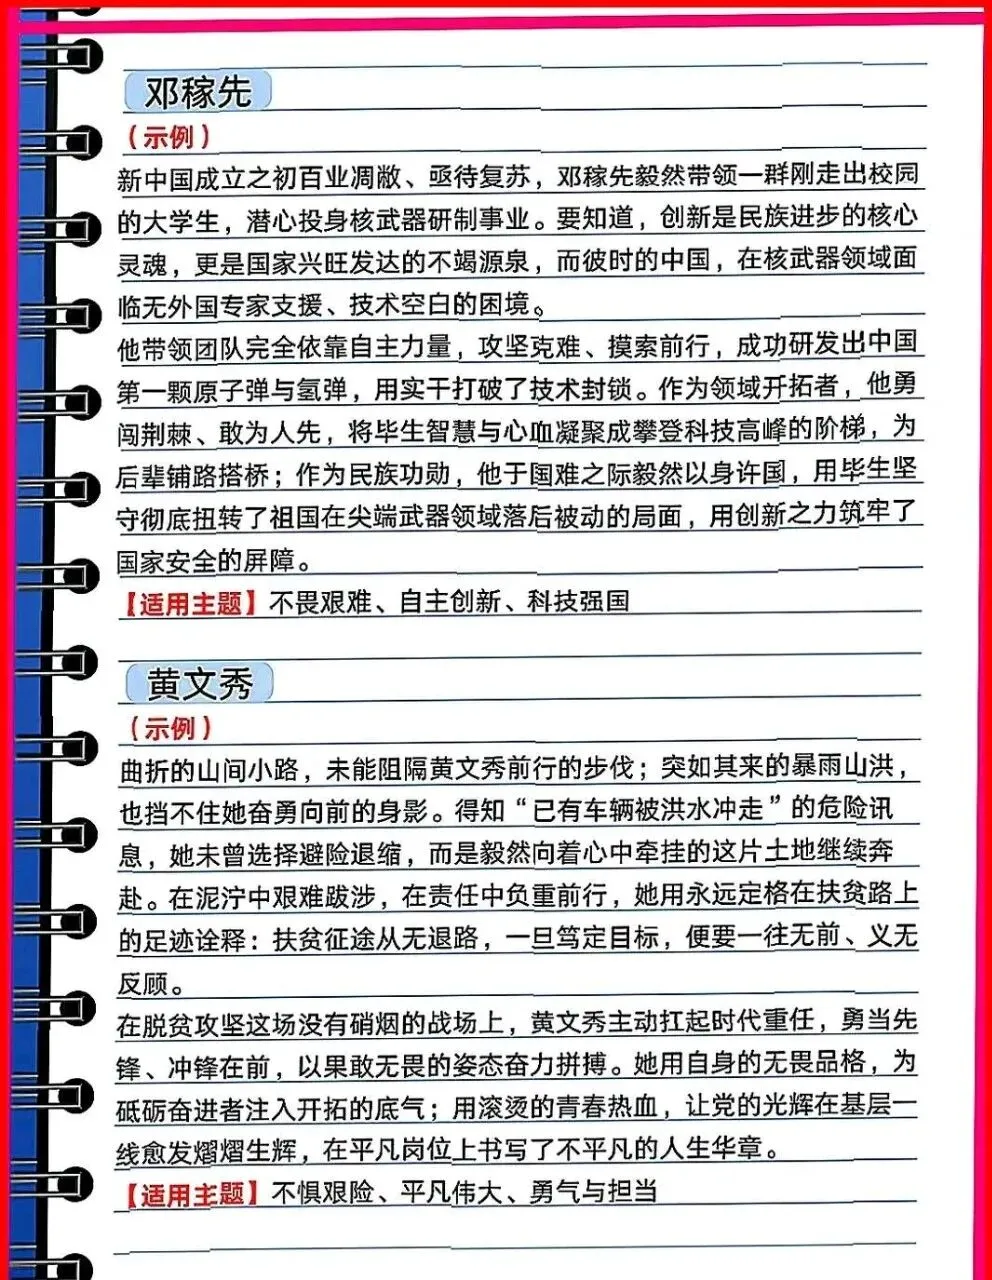 邓稼先
（示例）
新中国成立之初百业凋敝、亟待复苏，邓稼先毅然带领一群刚走出校园
的大学生，潜心投身核武器研制事业。要知道，创新是民族进步的核心
灵魂，更是国家兴旺发达的不竭源泉，而彼时的中国，在核武器领域面
临无外国专家支援、技术空白的困境。
他带领团队完全依靠自主力量，攻坚克难、摸索前行，成功研发出中国
第一颗原子弹与氢弹，用实干打破了技术封锁。作为领域开拓者，他勇
闯荆棘、敢为人先，将毕生智慧与心血凝聚成攀登科技高峰的阶梯，为
后辈铺路搭桥；作为民族功勋，他于国难之际毅然以身许国，用毕生坚
守彻底扭转了祖国在尖端武器领域落后被动的局面，用创新之力筑牢了
国家安全的屏障。
【适用主题】不畏艰难、自主创新、科技强国
黄文秀
（示例）
曲折的山间小路，未能阻隔黄文秀前行的步伐；突如其来的暴雨山洪，
也挡不住她奋勇向前的身影。得知“已有车辆被洪水冲走”的危险讯
息，她未曾选择避险退缩，而是毅然向着心中牵挂的这片土地继续奔
赴。在泥泞中艰难跋涉，在责任中负重前行，她用永远定格在扶贫路上
的足迹诠释：扶贫征途从无退路，一旦笃定目标，便要一往无前、义无
反顾。
在脱贫攻坚这场没有硝烟的战场上，黄文秀主动扛起时代重任，勇当先
锋、冲锋在前，以果敢无畏的姿态奋力拼搏。她用自身的无畏品格，为
砥砺奋进者注入开拓的底气；用滚烫的青春热血，让党的光辉在基层一
线愈发熠熠生辉，在平凡岗位上书写了不平凡的人生华章。
【适用主题】不惧艰险、平凡伟大、勇气与担当